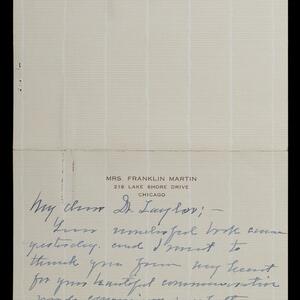 MRS. FRANKLIN MARTIN
219 LAKE SHORE DRIVE
CHICAGO
My dear Dr. Taylor; -
Your wonderful book came
yesterday. and I want to
thank you from my heart
for your beautiful communication